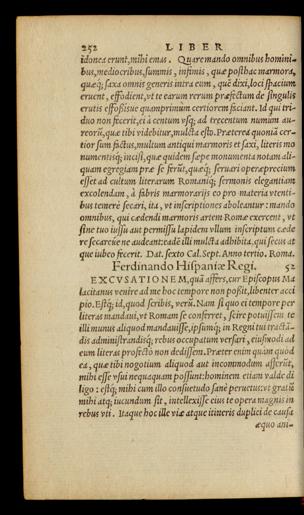 252 LIBER
idonea erunt, mihi emas. Quare mando omnibus homini-
bus, mediocribus, summis, infimis, quæ posthac marmora,
quæq; saxa omnis generis intra eum, què dixi, loci spacium
eruent, effodient, vt te earum rerum præfectum de singulis
erutis effoßisue quamprimùm certiorem faciant. Id qui tri-
duo non fecerit, ei à centum vsq; ad trecentum numum au-
reorũ, quæ tibi videbitur, mulcta esto. Præterea quoniã cer-
tior sum factus, multum antiqui marmoris et saxi, literis mo
numentisq; incisi, quæ quidem sæpe monumenta notam ali-
quam egregiam præ se ferũt, quæq; seruari operæprecium
esset ad cultum literarum Romanæq; sermonis elegantiam
excolendam, à fabris marmorarijs eo pro materia vtenti-
bus temerè secari, ita, vt inscriptiones aboleantur: mando
omnibus, qui cædendi marmoris artem Romæ exercent, vt
sine tuo iussu aut permissu lapidem vllum inscriptum cæde
re secareúe ne audeant: eadẽ illi mulcta adhibita, qui secus at
que iubeo fecerit. Dat. sexto Cal. Sept. Anno tertio. Roma.
Ferdinando Hispaniæ Regi. 52
EXCVSATIONEM, quã affers, cur Episcopus Ma
lacitanus venire ad me hoc tempore non poßit, libenter acci
pio. Estq; id, quod scribis, verũ. Nam si quo ei tempore per
literas mandaui, vt Romam se conferret, scire potuissem te
illi munus aliquod mandauisse, ipsumq; in Regni tui tractã-
dis administrandisq; rebus occupatum versari, eiusmodi ad
eum literas profectò non dedissem. Præter enim quàm quòd
ea, quæ tibi negotium aliquod aut incommodum afferũt,
mihi esse vsui nequaquam possunt: hominem etiam valde di
ligo: estq; mihi cum illo consuetudo sanè peruetus: vt gratũ
mihi atq; iucundum sit, intellexisse eius te opera magnis in
rebus vti. Itaque hoc ille viæ atque itineris duplici de causa
æquo ani-